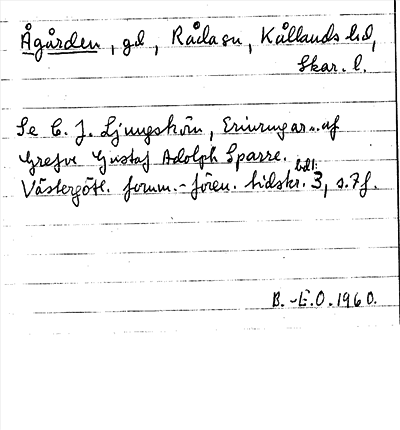 Ågården, gd, Råda sn, Kållands hd,
Skar. l.
Se C. J. Ljungström, Erinringar.. af
Grefve Gustaf Adolph Sparre.
Västergötl. fornm.-fören. tidskr. bd 1: 3, s. 7 f.
B.-E.O. 1960.